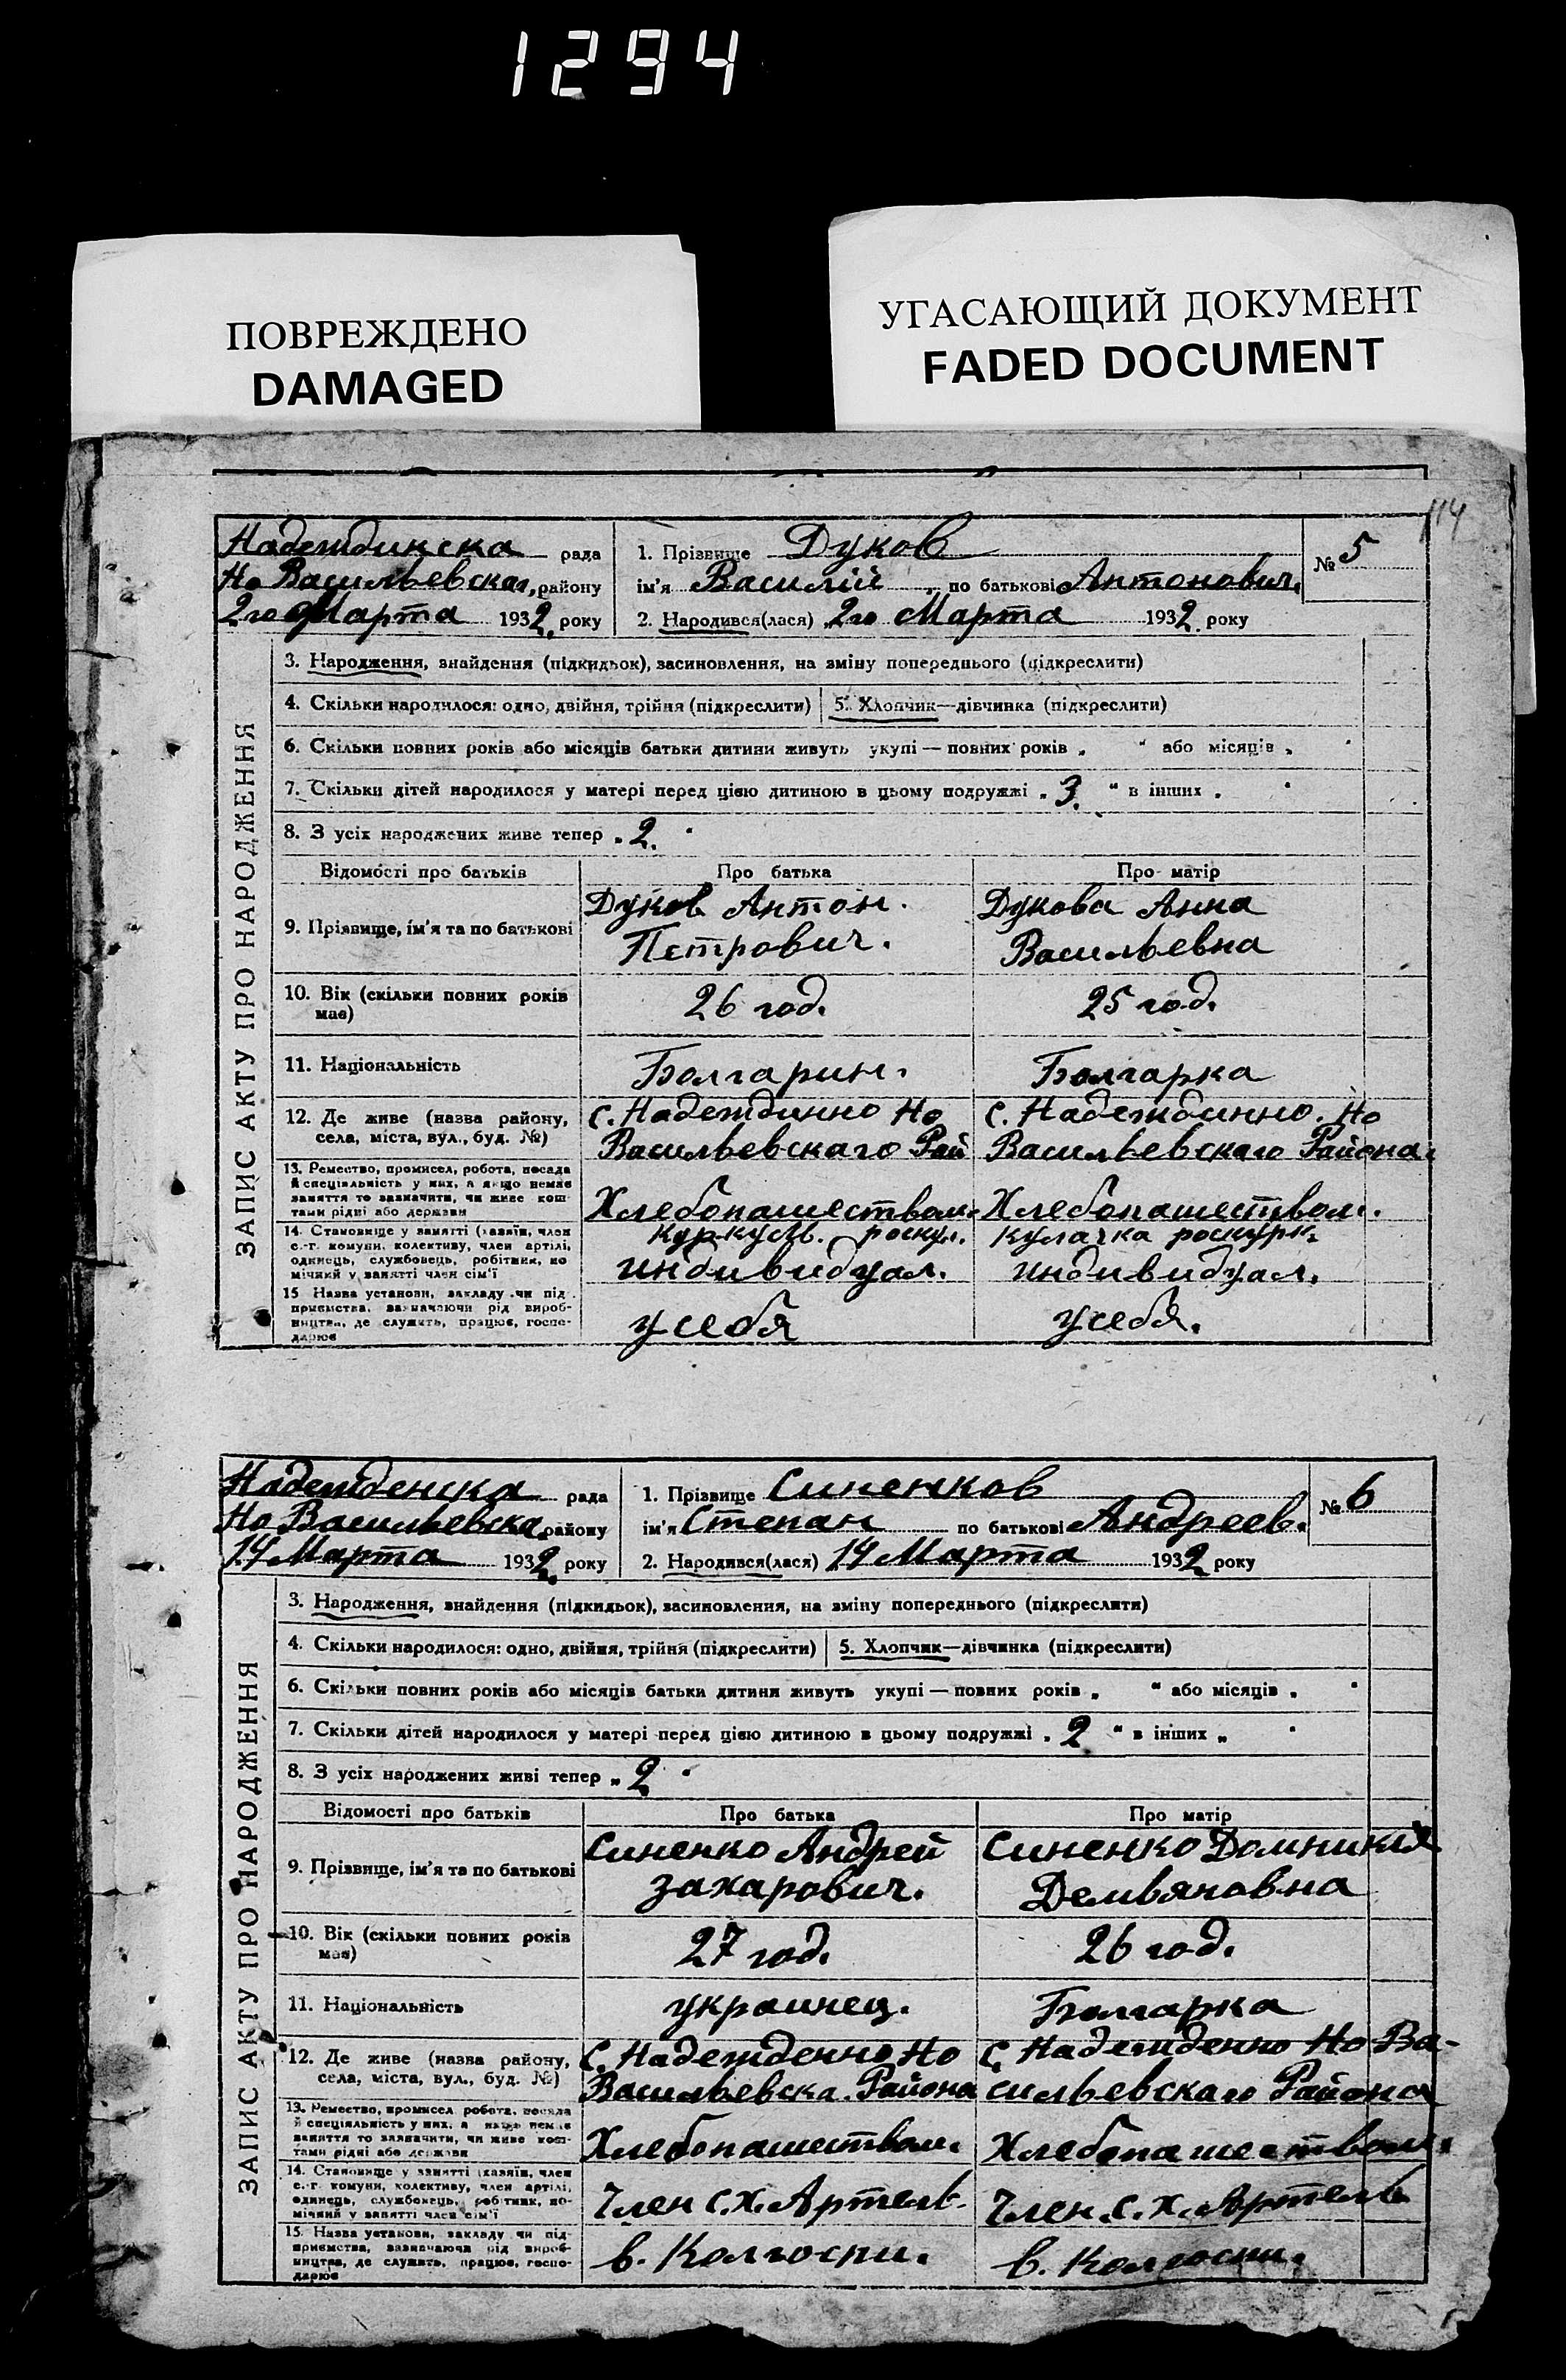 1294
ПОВРЕЖДЕНО
DAMAGED
УГАСАЮЩИЙ ДОКУМЕНТ
FADED DOCUMENT
114
ЗАПИС АКТУ ПРО НАРОДЖЕННЯ
Надеждинска рада
Но Васильевская, району
2го Марта 1932 року
1. Прізвище Дуков
ім'я Василій по батькові Антонович.
2. Народився(лася) 2го Марта 1932 року
№ 5
3. Народження, знайдення (підкидьок), засиновлення, на зміну попереднього (підкреслити)
4. Скільки народилося: одно, двійня, трійня (підкреслити) 5. Хлопчик—дівчинка (підкреслити)
6. Скільки повних років або місяців батьки дитини живуть укупі — повних років „ “ або місяців „
7. Скільки дітей народилося у матері перед цією дитиною в цьому подружжі „ 3. “ в інших „
8. З усіх народжених живе тепер „ 2.
Відомості про батьків Про батька Про матір
9. Прізвище, ім'я та по батькові
Дуков Антон.
Петрович.
Дукова Анна
Васильевна
10. Вік (скільки повних років
має)
26 год.
25 год.
11. Національність
Болгарин.
Болгарка
12. Де живе (назва району,
села, міста, вул., буд. №)
с. Надеждинно Но
Васильевскаго Рай
с. Надеждинно. Но
Васильевскаго Района.
13. Ремество, промисел, робота, посада
й спеціяльність у них, а якщо немає
заняття то зазначити, чи живе кош-
тами рідні або держави
Хлебопашеством.
Хлебопашеством.
14. Становище у занятті (хазяїн, член
с.-г. комуни, колективу, член артілі,
одинець, службовець, робітник, по
мічний у занятті член сім'ї
куркуль. роскул.
индивидуал.
кулачка роскурк.
индивидуал.
15 Назва установи, закладу чи під
приємства, зазначаючи рід вироб-
ництва, де служить, працює, госпо-
дарює
у себя
у себя.
ЗАПИС АКТУ ПРО НАРОДЖЕННЯ
Надежденска рада
Но Васильевска. району
14 Марта 1932 року
1. Прізвище Синенков
ім'я Степан по батькові Андреев.
2. Народився(лася) 14 Марта 1932 року
№ 6
3. Народження, знайдення (підкидьок), засиновлення, на зміну попереднього (підкреслити)
4. Скільки народилося: одно, двійня, трійня (підкреслити) 5. Хлопчик—дівчинка (підкреслити)
6. Скільки повних років або місяців батьки дитини живуть укупі — повних років „ “ або місяців „
7. Скільки дітей народилося у матері перед цією дитиною в цьому подружжі „ 2 “ в інших „
8. З усіх народжених живі тепер „ 2
Відомості про батьків Про батька Про матір
9. Прізвище, ім'я та по батькові
Синенко Андрей
Захарович.
Синенко Домникия
Демьяновна
10. Вік (скільки повних років
має)
27 год.
26 год.
11. Національність
украинец.
Болгарка
12. Де живе (назва району,
села, міста, вул., буд. №)
С. Надежденно Но
Васильевска. Района
С. Надежденно Но Ва-
сильевскаго Района
13. Ремество, промисел робота, посада
й спеціяльність у них, а якщо немає
заняття то зазначити, чи живе кош-
тами рідні або держави
Хлебопашеством.
Хлебопашеством.
14. Становище у занятті (хазяїн, член
с.-г. комуни, колективу, член артілі,
одинець, службовець, робітник, по-
мічний у занятті член сім'ї
Член С.Х. Артель.
Член. С. Х. Артель
15. Назва установи, закладу чи під-
приємства, зазначаючи рід вироб-
ництва, де служить, працює, госпо-
дарює
в. Колгоспи.
в. Колгоспи.